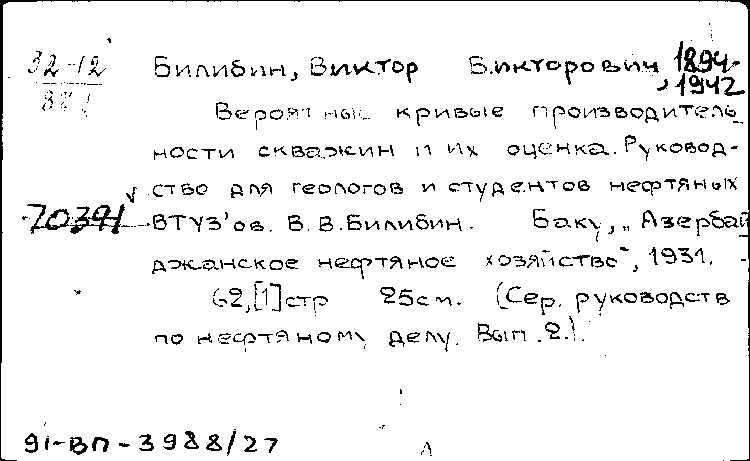 32-12 Билибин, Виктор Викторович, 1894-
1942
Вероятные кривые производитель-
ности скважин и их оценка. Руковод-
ство для геологов и студентов нефтяных
70391 ВТУЗ'ов. В.В.Билибин. Баку, „Азербай
джанское нефтяное хозяйство", 1931.
62,[1]стр 25см. (Сер. руководств
по нефтяному делу. Вып. 2.).
91-ВП-3988/27